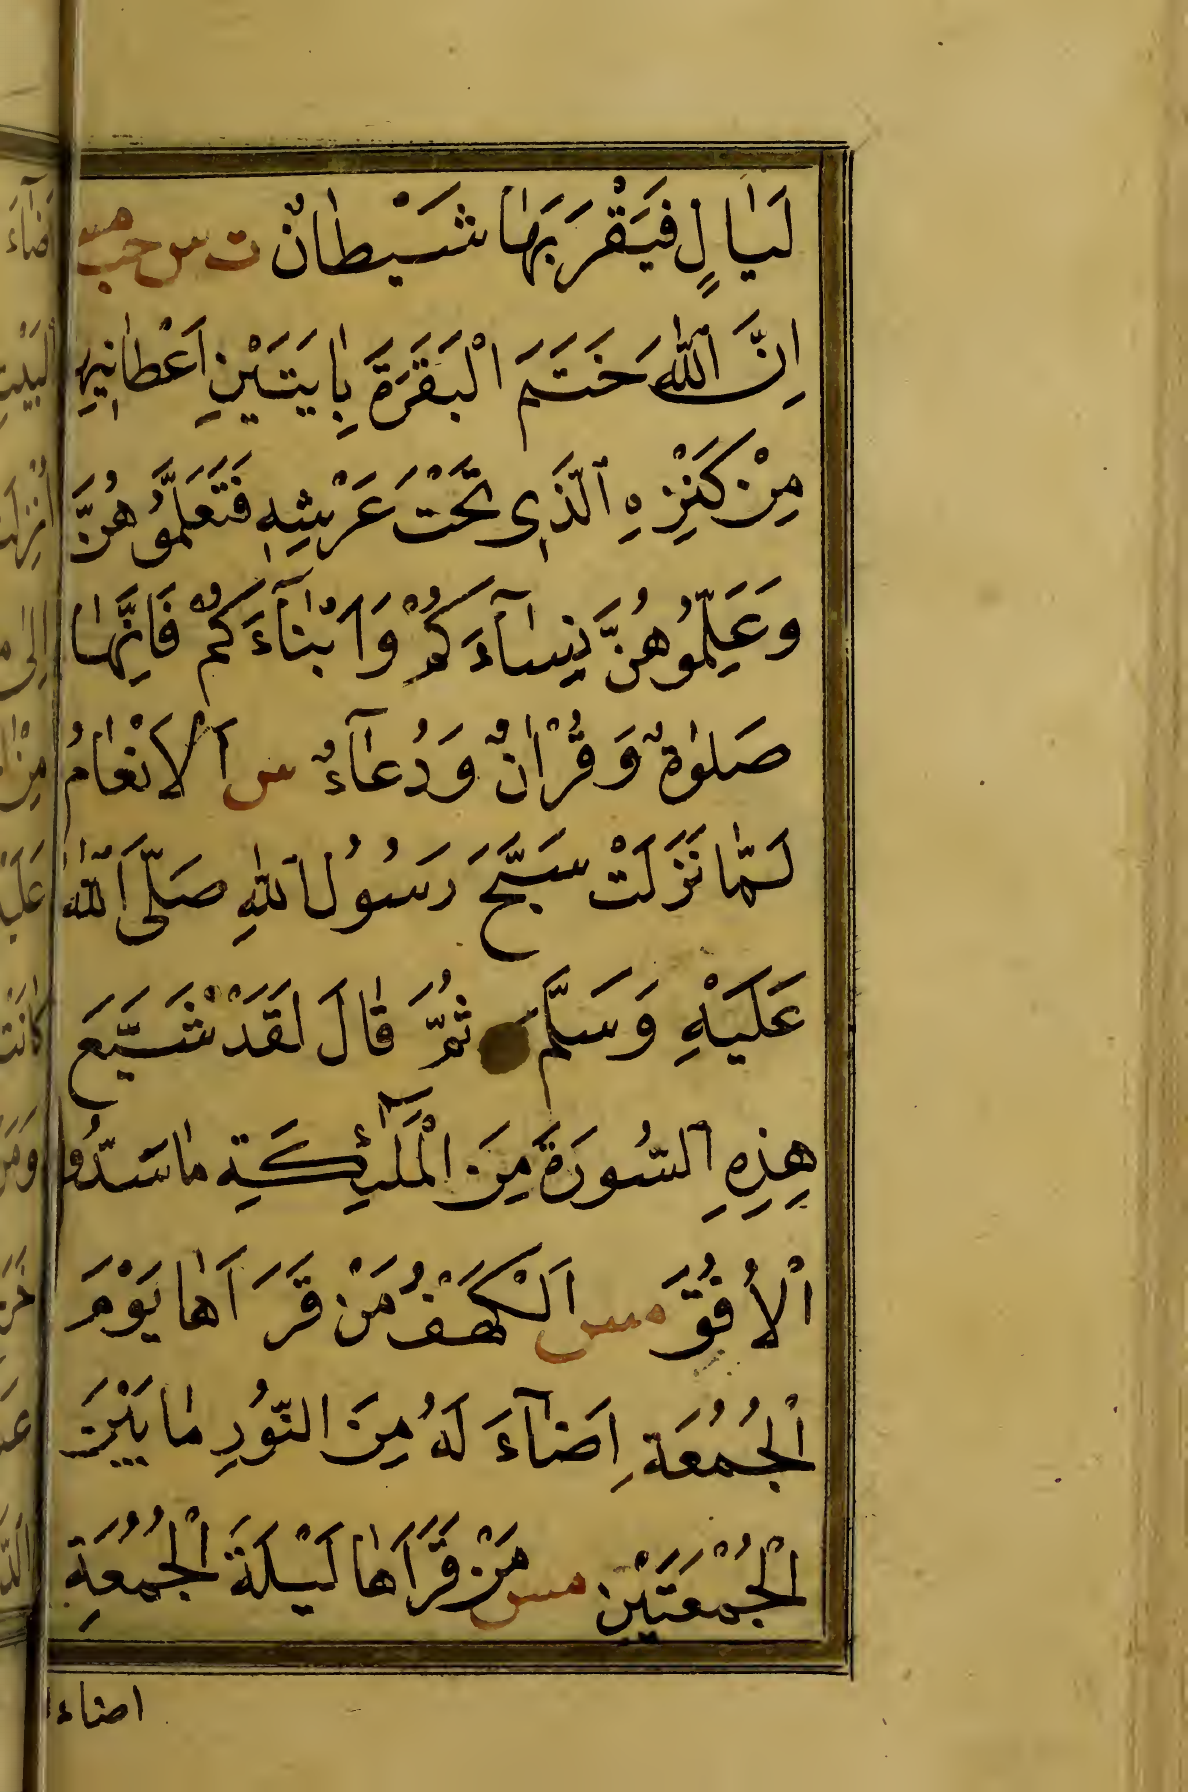 لَيَالٍ فَيَقْرَبَهَا شَيْطَانٌ ت س حب مس
اِنَّ اللّٰهَ خَتَمَ الْبَقَرَةَ بِاٰيَتَيْنِ اَعْطَانِيهِمَا
مِنْ كَنْزِهِ الَّذِي تَحْتَ عَرْشِهِ فَتَعَلَّمُوهُنَّ
وَعَلِّمُوهُنَّ نِسَآءَكُمْ وَاَبْنَآءَكُمْ فَاِنَّهَا
صَلٰوةٌ وَقُرْاٰنٌ وَدُعَآءٌ مس اَلْاَنْعَامُ
لَمَّا نَزَلَتْ سَبَّحَ رَسُولُ اللّٰهِ صَلَّى اللّٰهُ
عَلَيْهِ وَسَلَّمَ ثُمَّ قَالَ لَقَدْ شَيَّعَ
هٰذِهِ السُّورَةَ مِنَ الْمَلٰٓئِكَةِ مَا سَدُّوا
الْاُفُقَ مس اَلْكَهْفُ مَنْ قَرَاَهَا يَوْمَ
الْجُمُعَةِ اَضَآءَ لَهُ مِنَ النُّورِ مَا بَيْنَ
الْجُمُعَتَيْنِ مس مَنْ قَرَاَهَا لَيْلَةَ الْجُمُعَةِ
اضاء